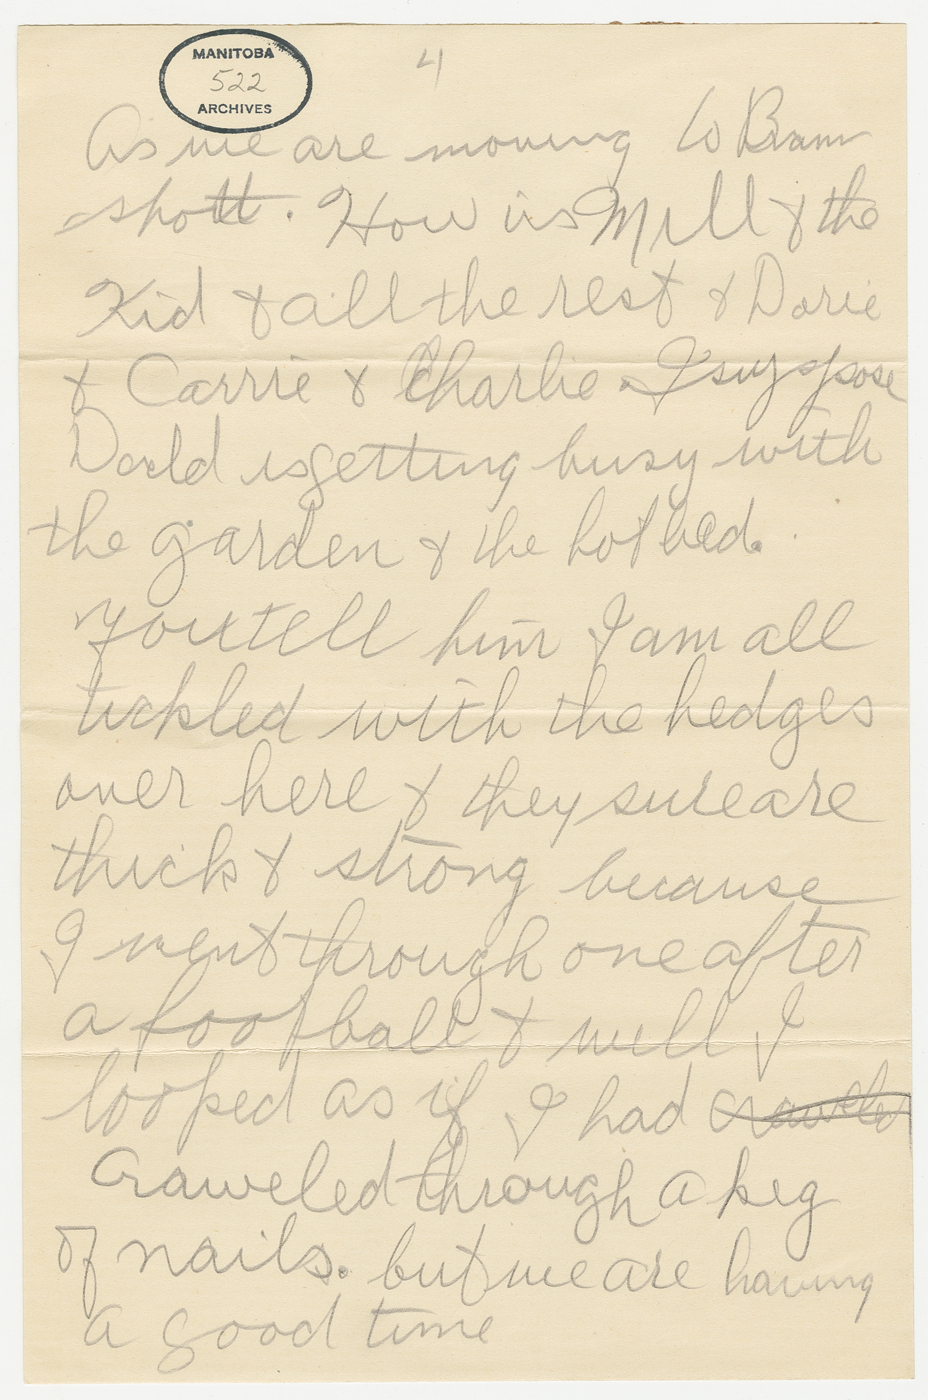 MANITOBA
522
ARCHIVES
4
As we are moving to Bram
shott. How is Mill & the
Kid & all the rest & Dorie
& Carrie & Charlie. I suppose
Dorld is getting busy with
the garden & the hot bed.
You tell him I am all
tickled with the hedges
over here & they sure are
thick & strong because
I went through one after
a foot ball & well I
looked as if I had crawled
craweled through a keg
of nails. but we are having
a good time